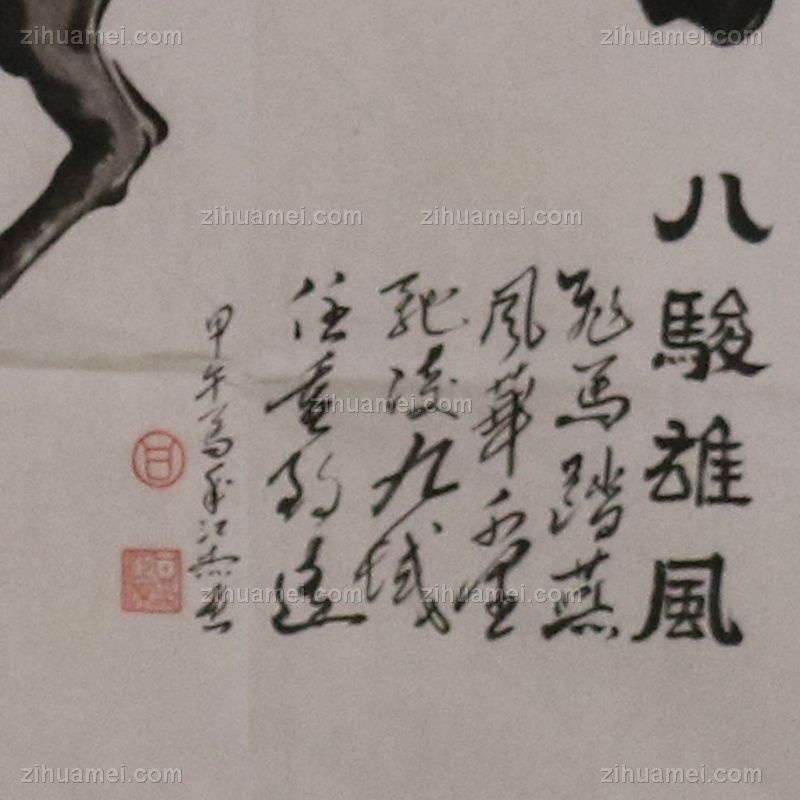 zihuamei.com zihuamei.com zihuamei.com
zihuamei.com zihuamei.com
八駿雄風
飛馬踏燕
風華千里
馳凌九域
任重致遠
甲午
江杰
zihuamei.com zihuamei.com
zihuamei.com zihuamei.com